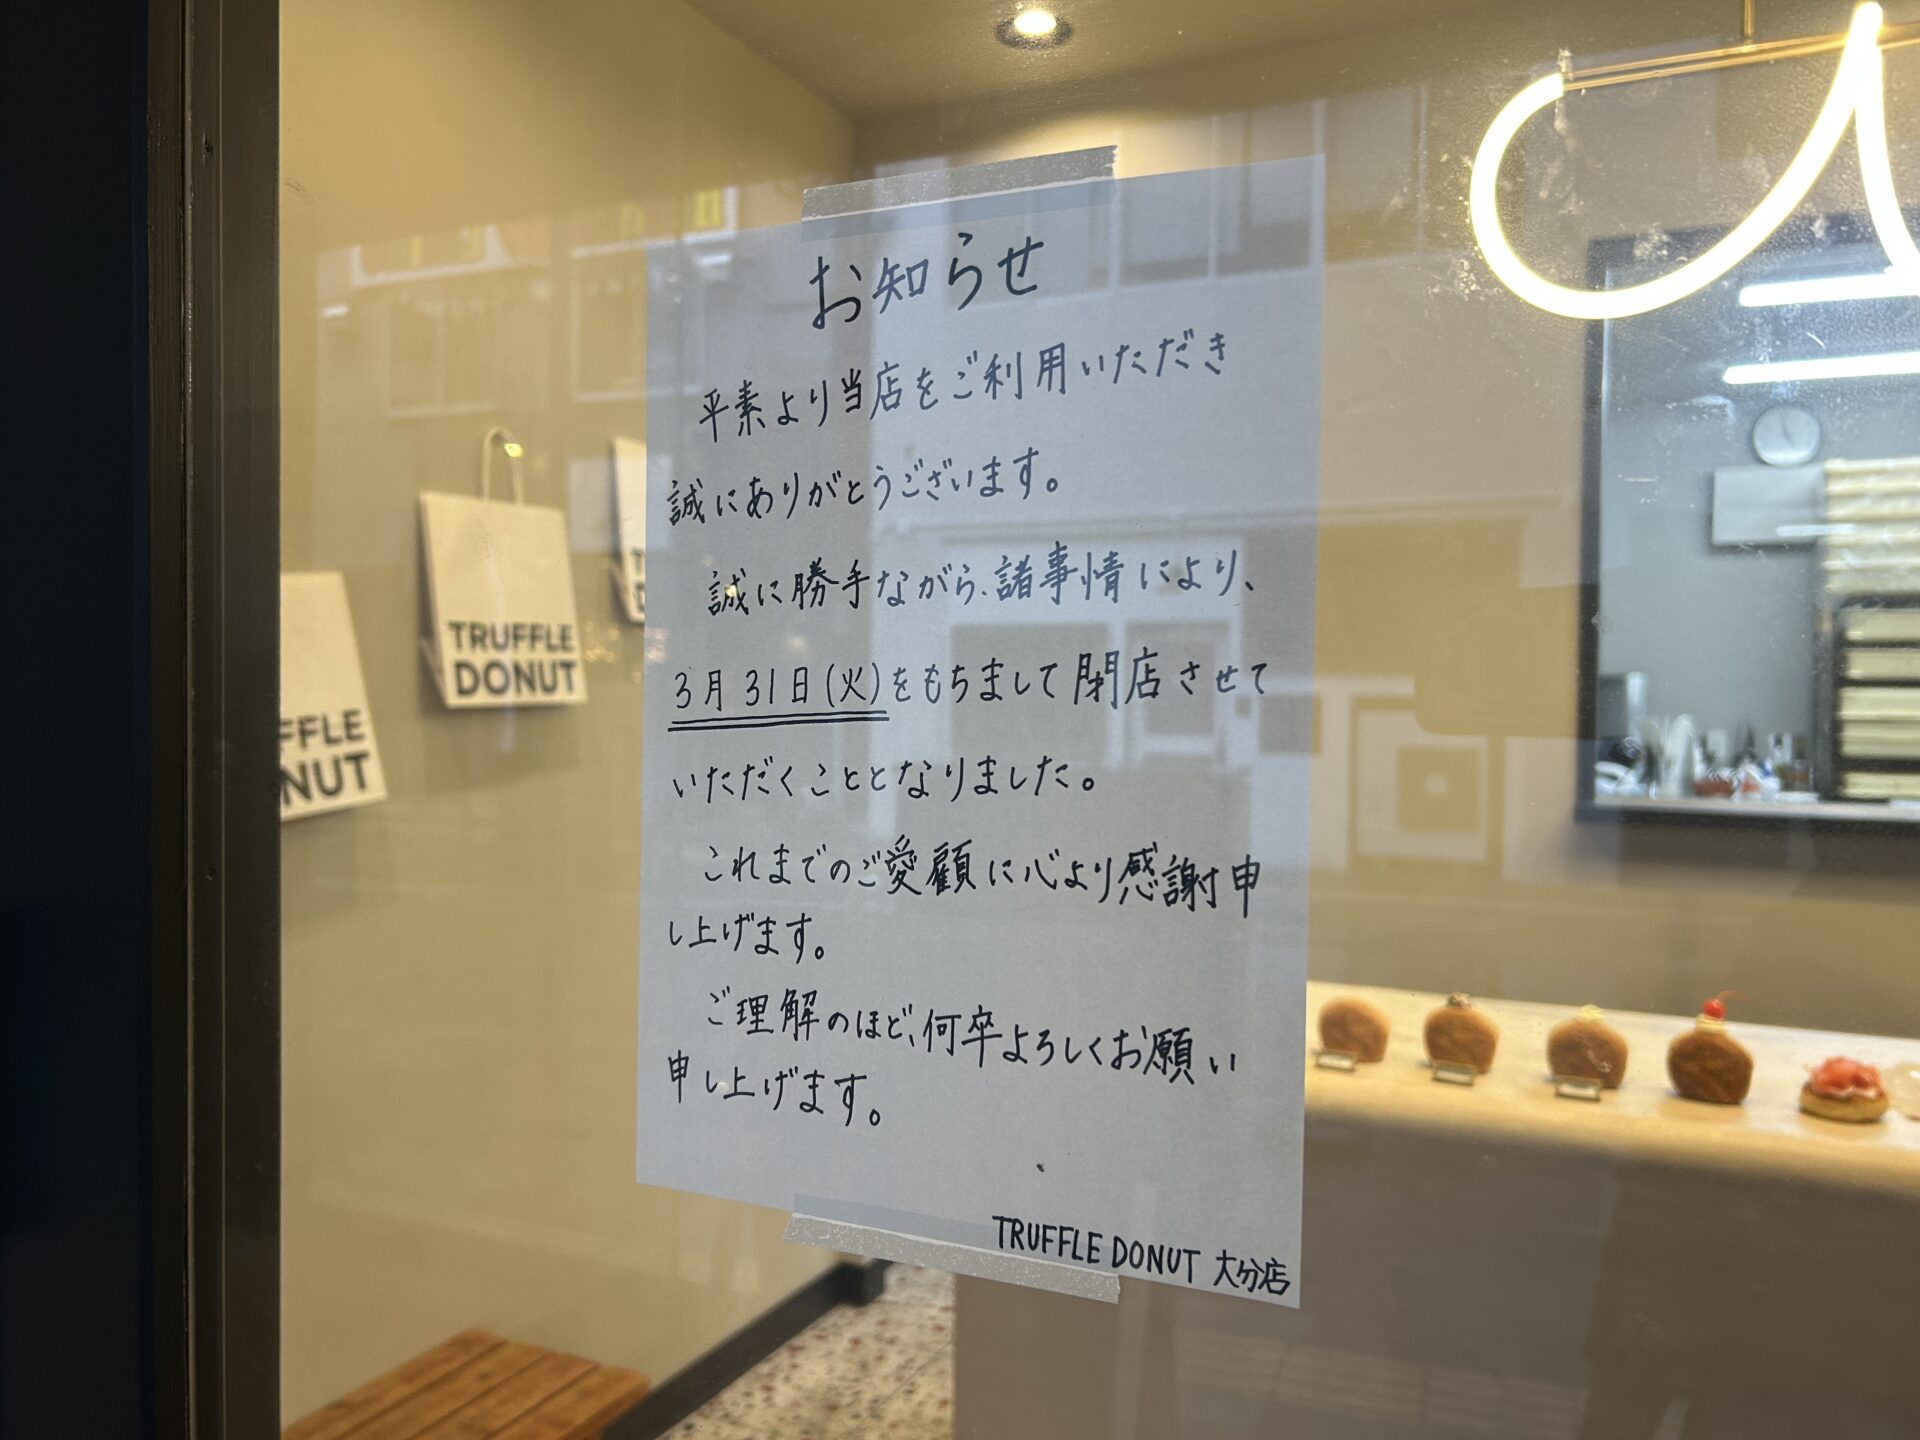 お知らせ
平素より当店をご利用いただき
誠にありがとうございます。
誠に勝手ながら、諸事情により、
3月31日(火)をもちまして閉店させて
いただくこととなりました。
これまでのご愛顧に心より感謝申
し上げます。
ご理解のほど、何卒よろしくお願い
申し上げます。
TRUFFLE DONUT 大分店
TRUFFLE
DONUT
FFLE
NUT